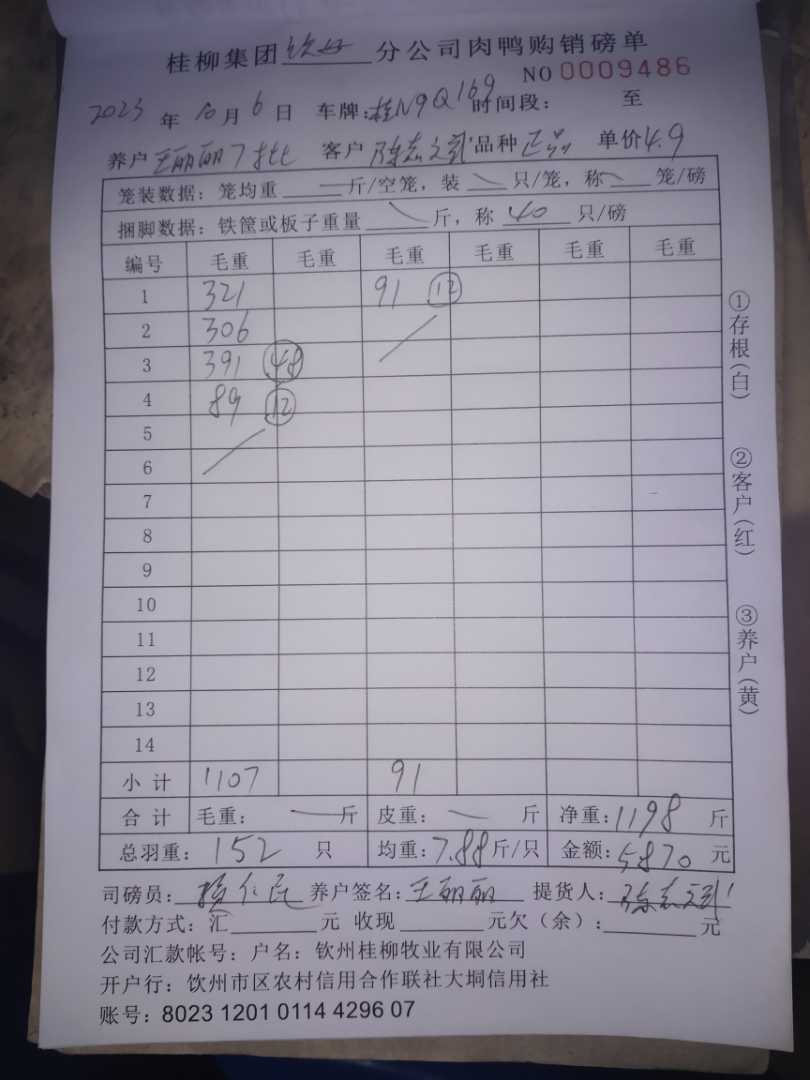 桂柳集团钦州分公司肉鸭购销磅单
NO 0009486
2023年10月6日 车牌:桂N9Q169 时间段: 至
养户 王丽丽7批 客户 陈志文 品种 正品 单价4.9
笼装数据:笼均重 斤/空笼,装 只/笼,称 笼/磅
捆脚数据:铁筐或板子重量 斤,称 40 只/磅
编号 毛重 毛重 毛重 毛重 毛重 毛重
1 321 91 ⑫
2 306
3 391 ㊽
4 89 ⑫
5
6
7
8
9
10
11
12
13
14
小计 1107 91
合计 毛重: 斤 皮重: 斤 净重:1198 斤
总羽重:152 只 均重:7.88斤/只 金额:5870 元
司磅员: 养户签名:王丽丽 提货人:陈志文
付款方式:汇 元 收现 元欠(余): 元
公司汇款帐号:户名:钦州桂柳牧业有限公司
开户行:饮州市区农村信用合作联社大垌信用社
账号:8023 1201 0114 4296 07
①存根(白)
②客户(红)
③养户(黄)